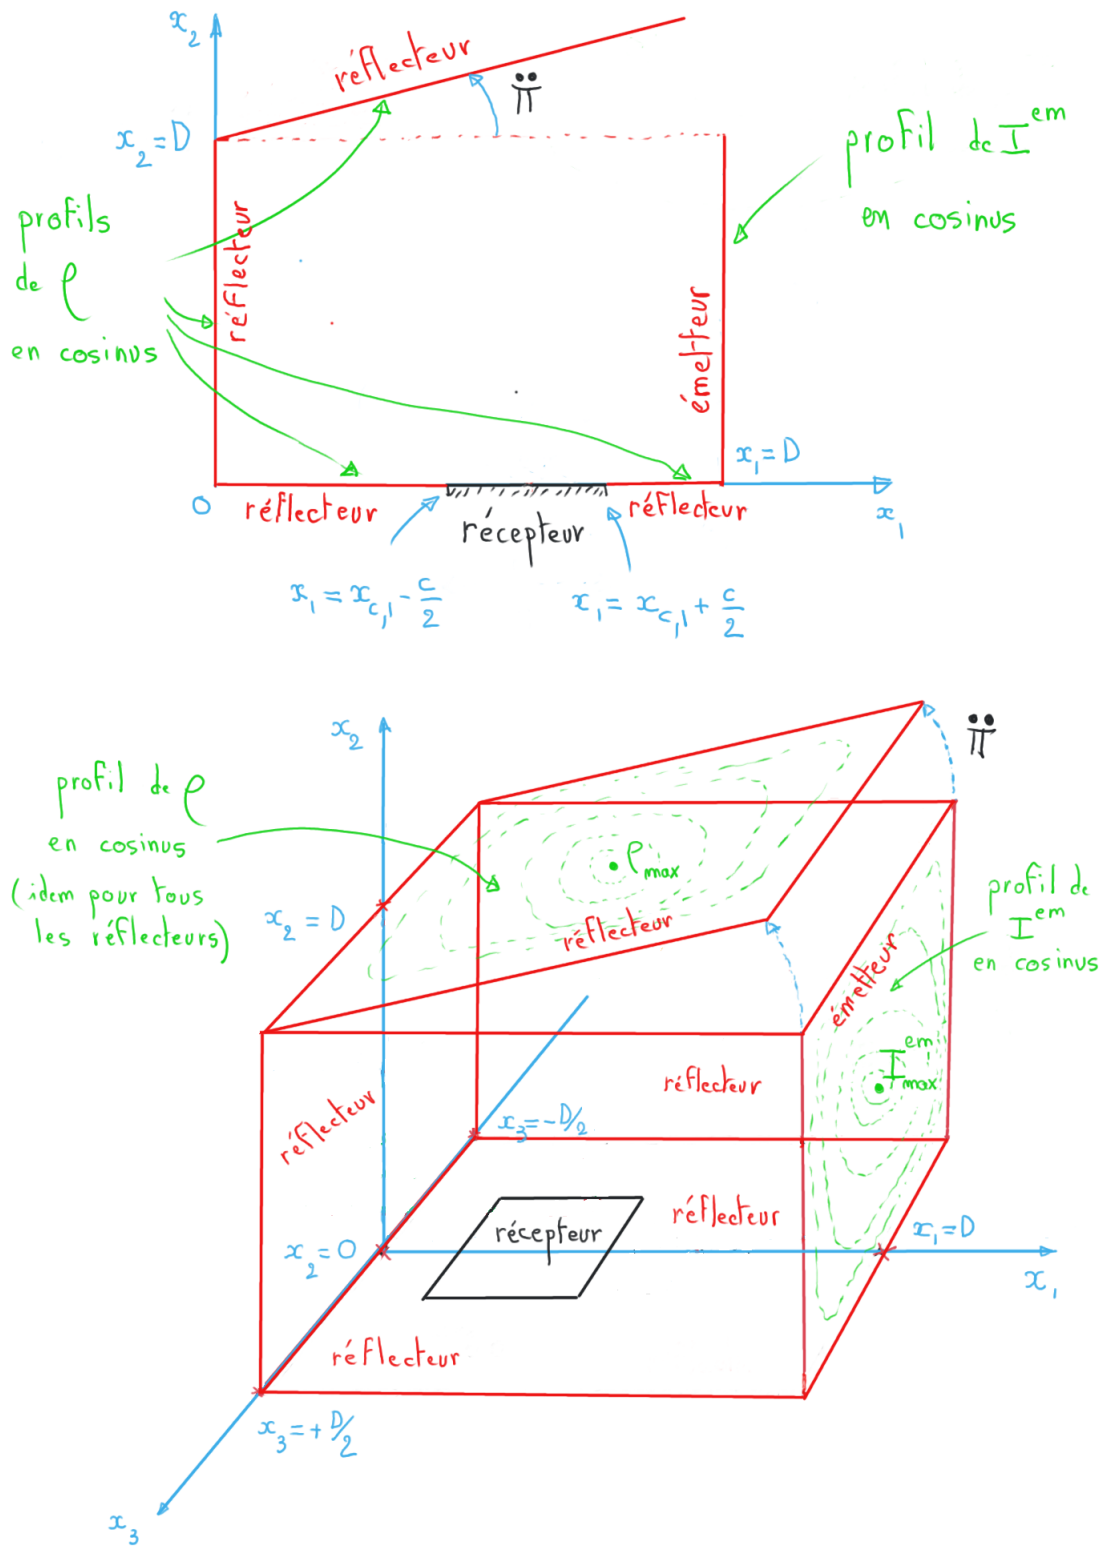 x₂
réflecteur
π̈
x₂ = D
profil de I^em
en cosinus
profils
de ρ
en cosinus
réflecteur
émetteur
x₁ = D
O
réflecteur
récepteur
réflecteur
x₁
x₁ = x_c,1 - c/2
x₁ = x_c,1 + c/2
x₂
π̈
profil de ρ
en cosinus
(idem pour tous
les réflecteurs)
ρ_max
x₂ = D
réflecteur
profil de
I^em
en cosinus
émetteur
I^em_max
réflecteur
réflecteur
x₃ = -D/2
récepteur
réflecteur
x₂ = O
x₁ = D
x₁
réflecteur
x₃ = + D/2
x₃